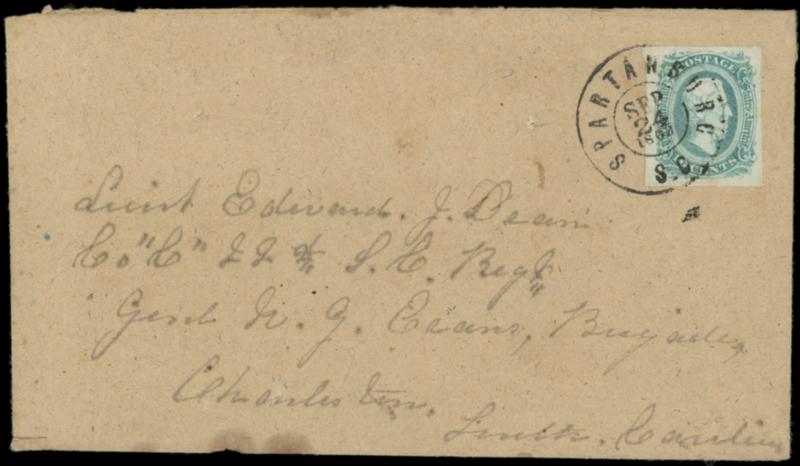 SPARTANBURG
S.C.
SEP
24
POSTAGE
CENTS
Lieut Edward. J. Dean
Co "C" 22d S. C. Regt
Genl N. G. Evans, Brigade,
Charleston.
South. Carolina